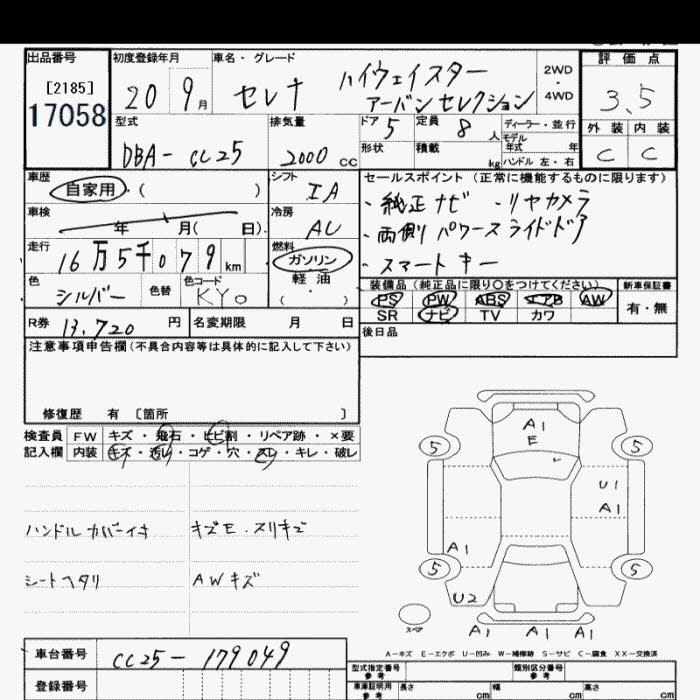 出品番号
[2185]
17058
初度登録年月
20 9月
車名・グレード
セレナ
ハイウェイスター
アーバンセレクション
2WD
・
4WD
評価点
3.5
外装 内装
C C
型式
DBA-CC25
排気量
2000 cc
ドア 5
定員 8 人
形状
積載 kg
ディーラー・並行
モデル年式 年
ハンドル 左・右
車歴
自家用・( )
シフト
IA
車検
年 月( 日)
冷房
AC
走行
16万5千079km
燃料
ガソリン
・
軽油
( )
色
シルバー
色替
色コード
KY0
R券 13,720 円
名変期限 月 日
セールスポイント(正常に機能するものに限ります)
・純正ナビ ・リヤカメラ
・両側パワースライドドア
・スマートキー
装備品(純正品に限り○をつけてください)
PS PW ABS エアB AW
SR ナビ TV カワ
新車保証書
有・無
後日品
注意事項申告欄(不具合内容等は具体的に記入して下さい)
修復歴 有 〔箇所 〕
検査員記入欄
FW キズ・飛石・ヒビ割・リペア跡・×要
内装 キズ・汚レ・コゲ・穴・スレ・キレ・破レ
ハンドルカバーイキ
キズE・スリキズ
シートヘタリ
AWキズ
A1
E
5 5
U1
A1
A1
5 5
U2
スペア
A1 A1 A1
A-キズ E-エクボ U-凹み W-補修跡 S-サビ C-腐食 XX-交換済
車台番号
CC25-179049
登録番号
型式指定番号
参考
類別区分番号
参考
車庫証明用
参考
長さ cm
幅 cm
高さ cm